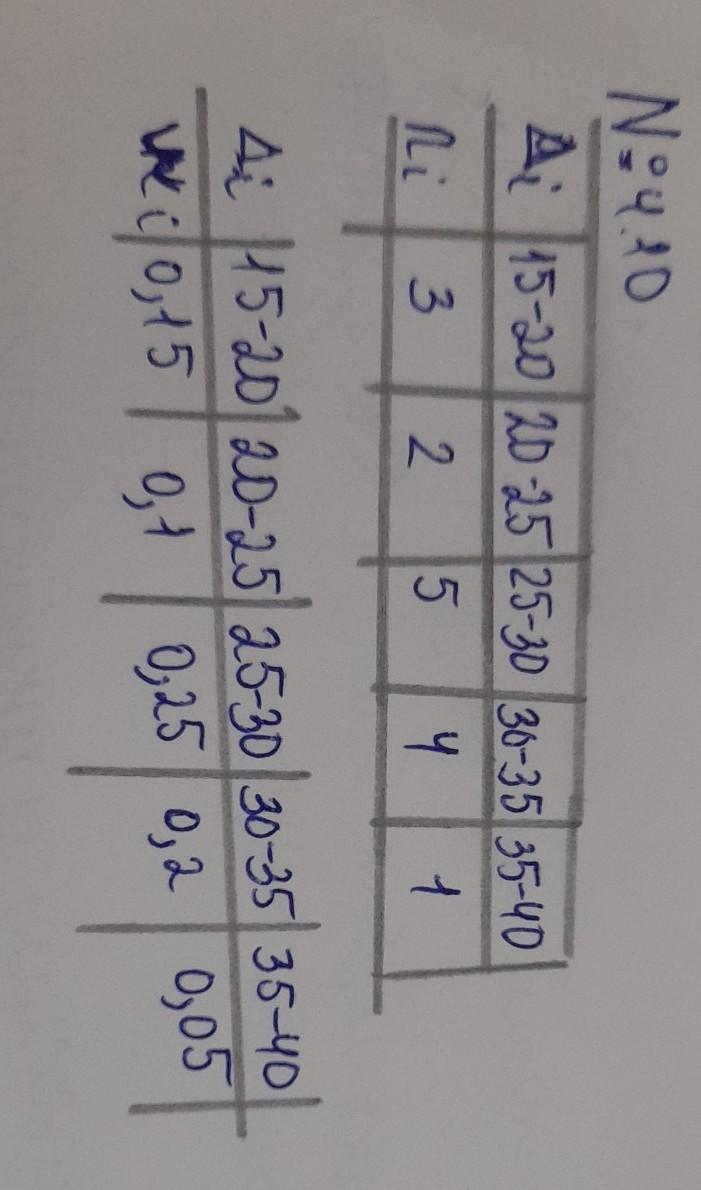 № 4.10
Δi 15-20 20-25 25-30 30-35 35-40
ni 3 2 5 4 1
Δi 15-20 20-25 25-30 30-35 35-40
wi 0,15 0,1 0,25 0,2 0,05